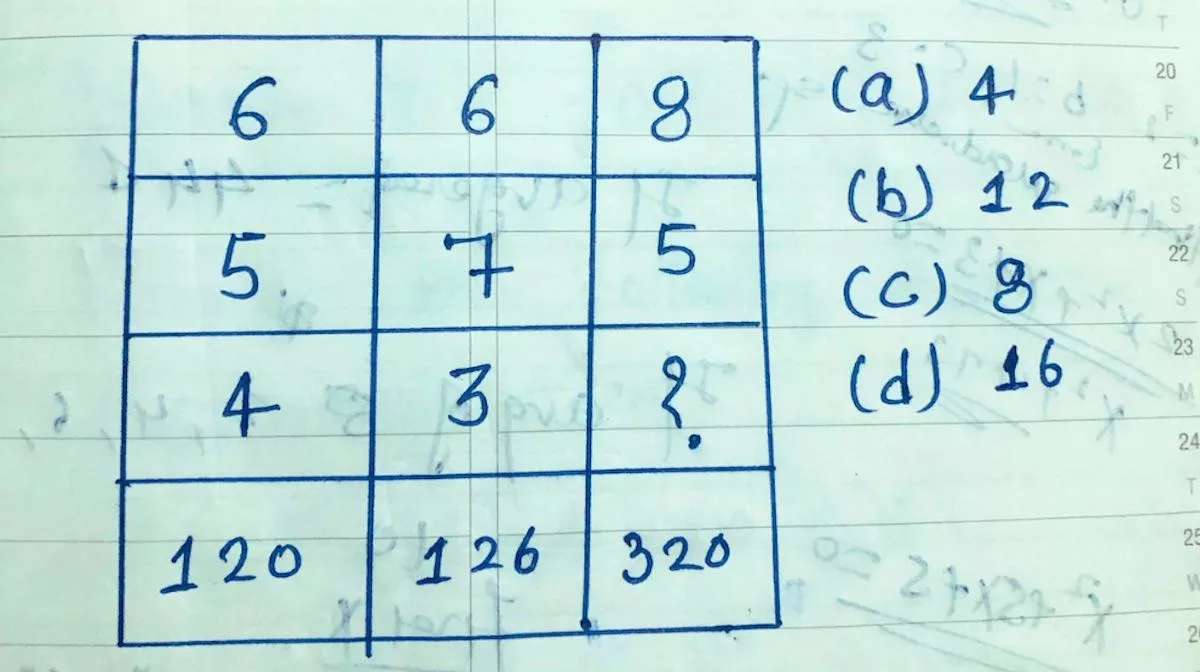 6 6 8 (a) 4
5 7 5 (b) 12
4 3 ? (c) 8
120 126 320 (d) 16
T
20
F
21
S
22
S
23
M
24
T
25
W